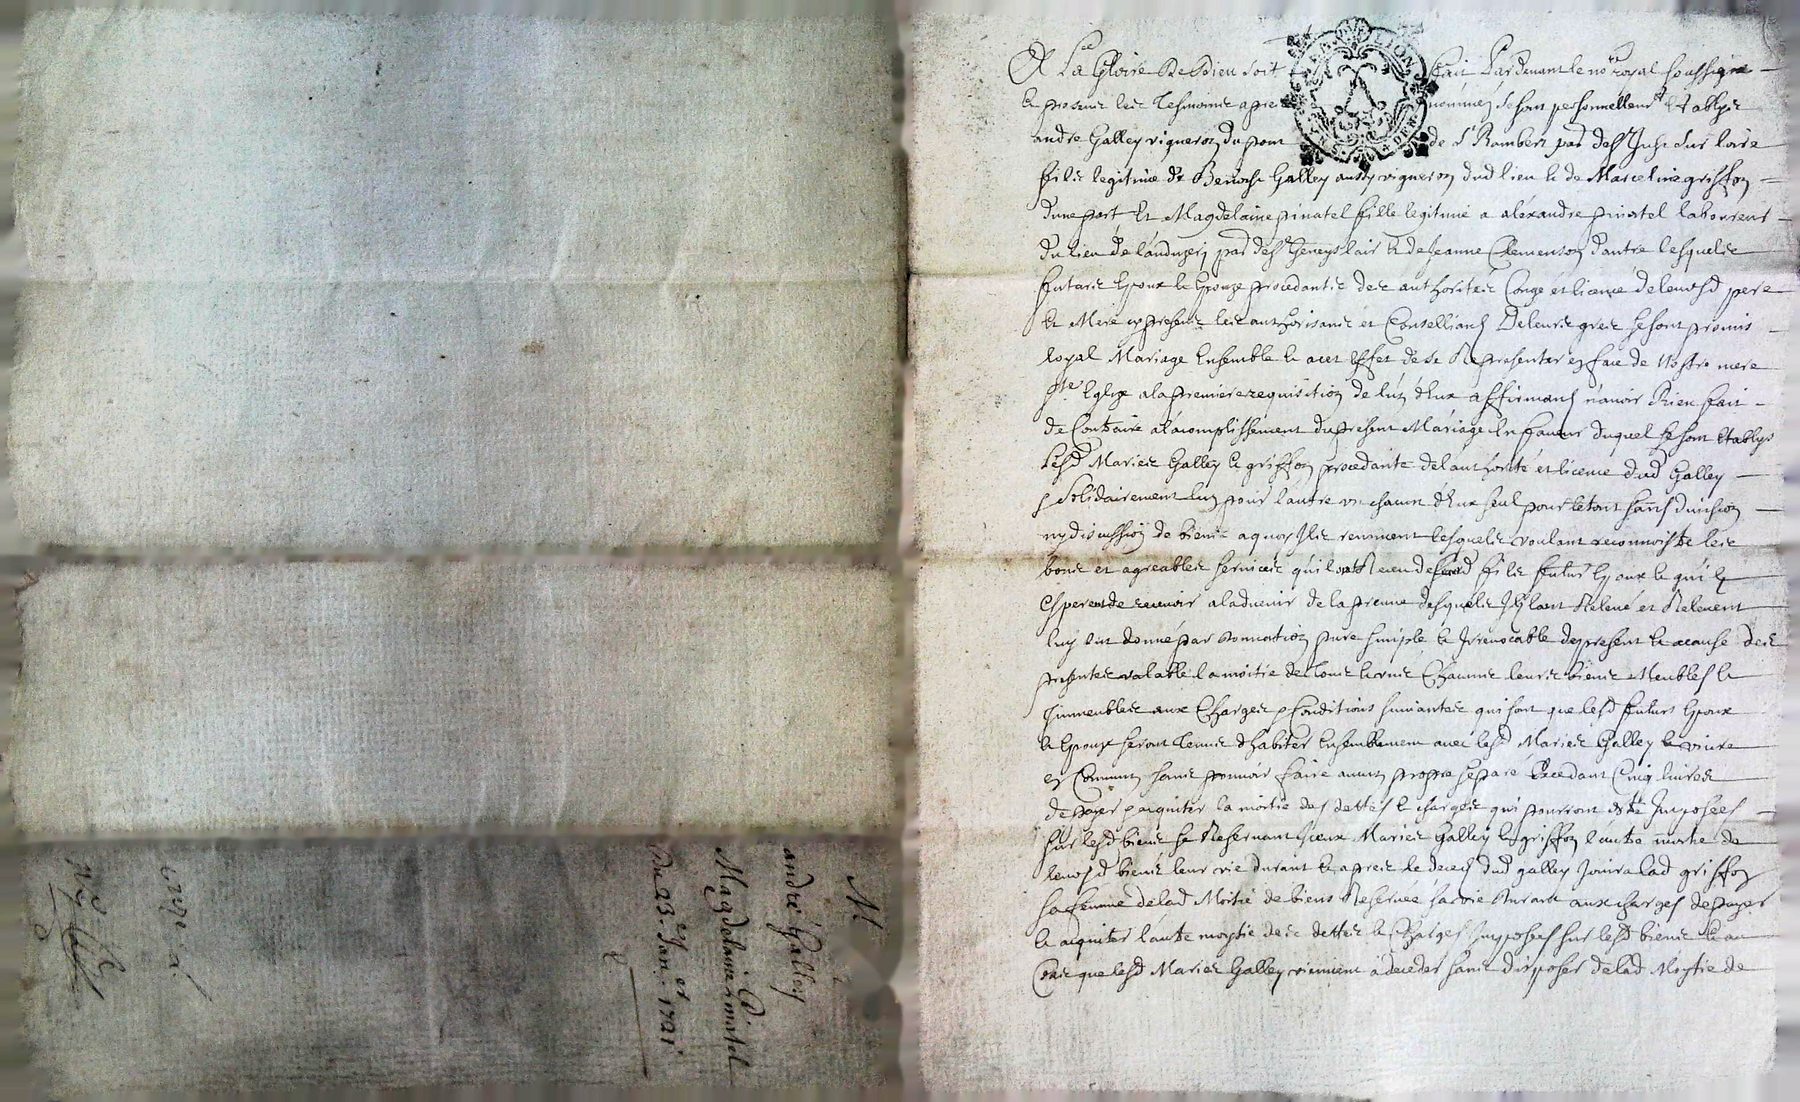 M.
andré Galley
et
Magdelaine pinatel
Du 23e Jan. 1721
A La Gloire De Dieu soit fait Pardevant le nore royal soussigné
et presents les tesmoins apres nommés se sont personnellemt Establys
andre Galley vigneron du pont de St Rambert par de St Just sur loire
fils legitime de Benoist Galley aussy vigneron dud lieu et de Marceline griffon
d'une part Et Magdelaine pinatel fille legitime a alexandre pinatel laboureur
du lieu de par de St Geneys lair et de Jeanne Clemenson d'autre lesquels
futurs Epoux et Epouze procedants des authorités Congé et licence de leursd pere
Et Mere cy presents les authorisants et Conseillians De leurs grés se sont promis
loyal Mariage Ensemble et a cet Effet de se Representer en face de Nostre mere
Ste Eglize a la premiere requisition de l'un d'Eux affirmant n'avoir Rien fait
de Contraire a l'acomplissement du present Mariage En faveur duquel se sont Establys
lesd Mariés Galley et griffon procedante de l'authorité et licence dud Galley
solidairement l'un pour l'autre un chacun d'Eux seul pour le tout sans division
ny discussion de biens a quoy Ils renoncent lesquels voulant reconnoistre les
bons et agreables services qu'ils ont Receu de leurd fils futur Epoux et qu'ils
Esperent de recevoir a l'advenir de la preuve desquels Ils l'ont Relevé et Relevent
luy ont donné par donnation pure simple et Irrevocable de present et a cause des
presentes valable la moitié de tous et uns Chacuns leurs biens Meubles et
Immeubles aux Charges et Conditions suivantes qui sont que lesd futurs Epoux
et Epouze seront tenus d'habiter Ensemblement avec lesd Mariés Galley et vivre
en Commun sans pouvoir faire aucun propre separé Excedant Cinq livres
de payer et acquiter la moitié des dettes et charges qui pourront estre Imposées
sur lesd biens se Reservant Iceux Mariés Galley et griffon l'autre moitié de
leursd biens leur vie durant et apres le deces dud galley Jouira lad griffon
sa femme de lad Moitié de biens Reservée sa vie durant aux charges de payer
et acquiter l'autre moytié des dettes et Charges Imposées sur lesd biens Et au
Cas que lesd Mariés Galley viennent a deceder sans disposer de lad Moytié de